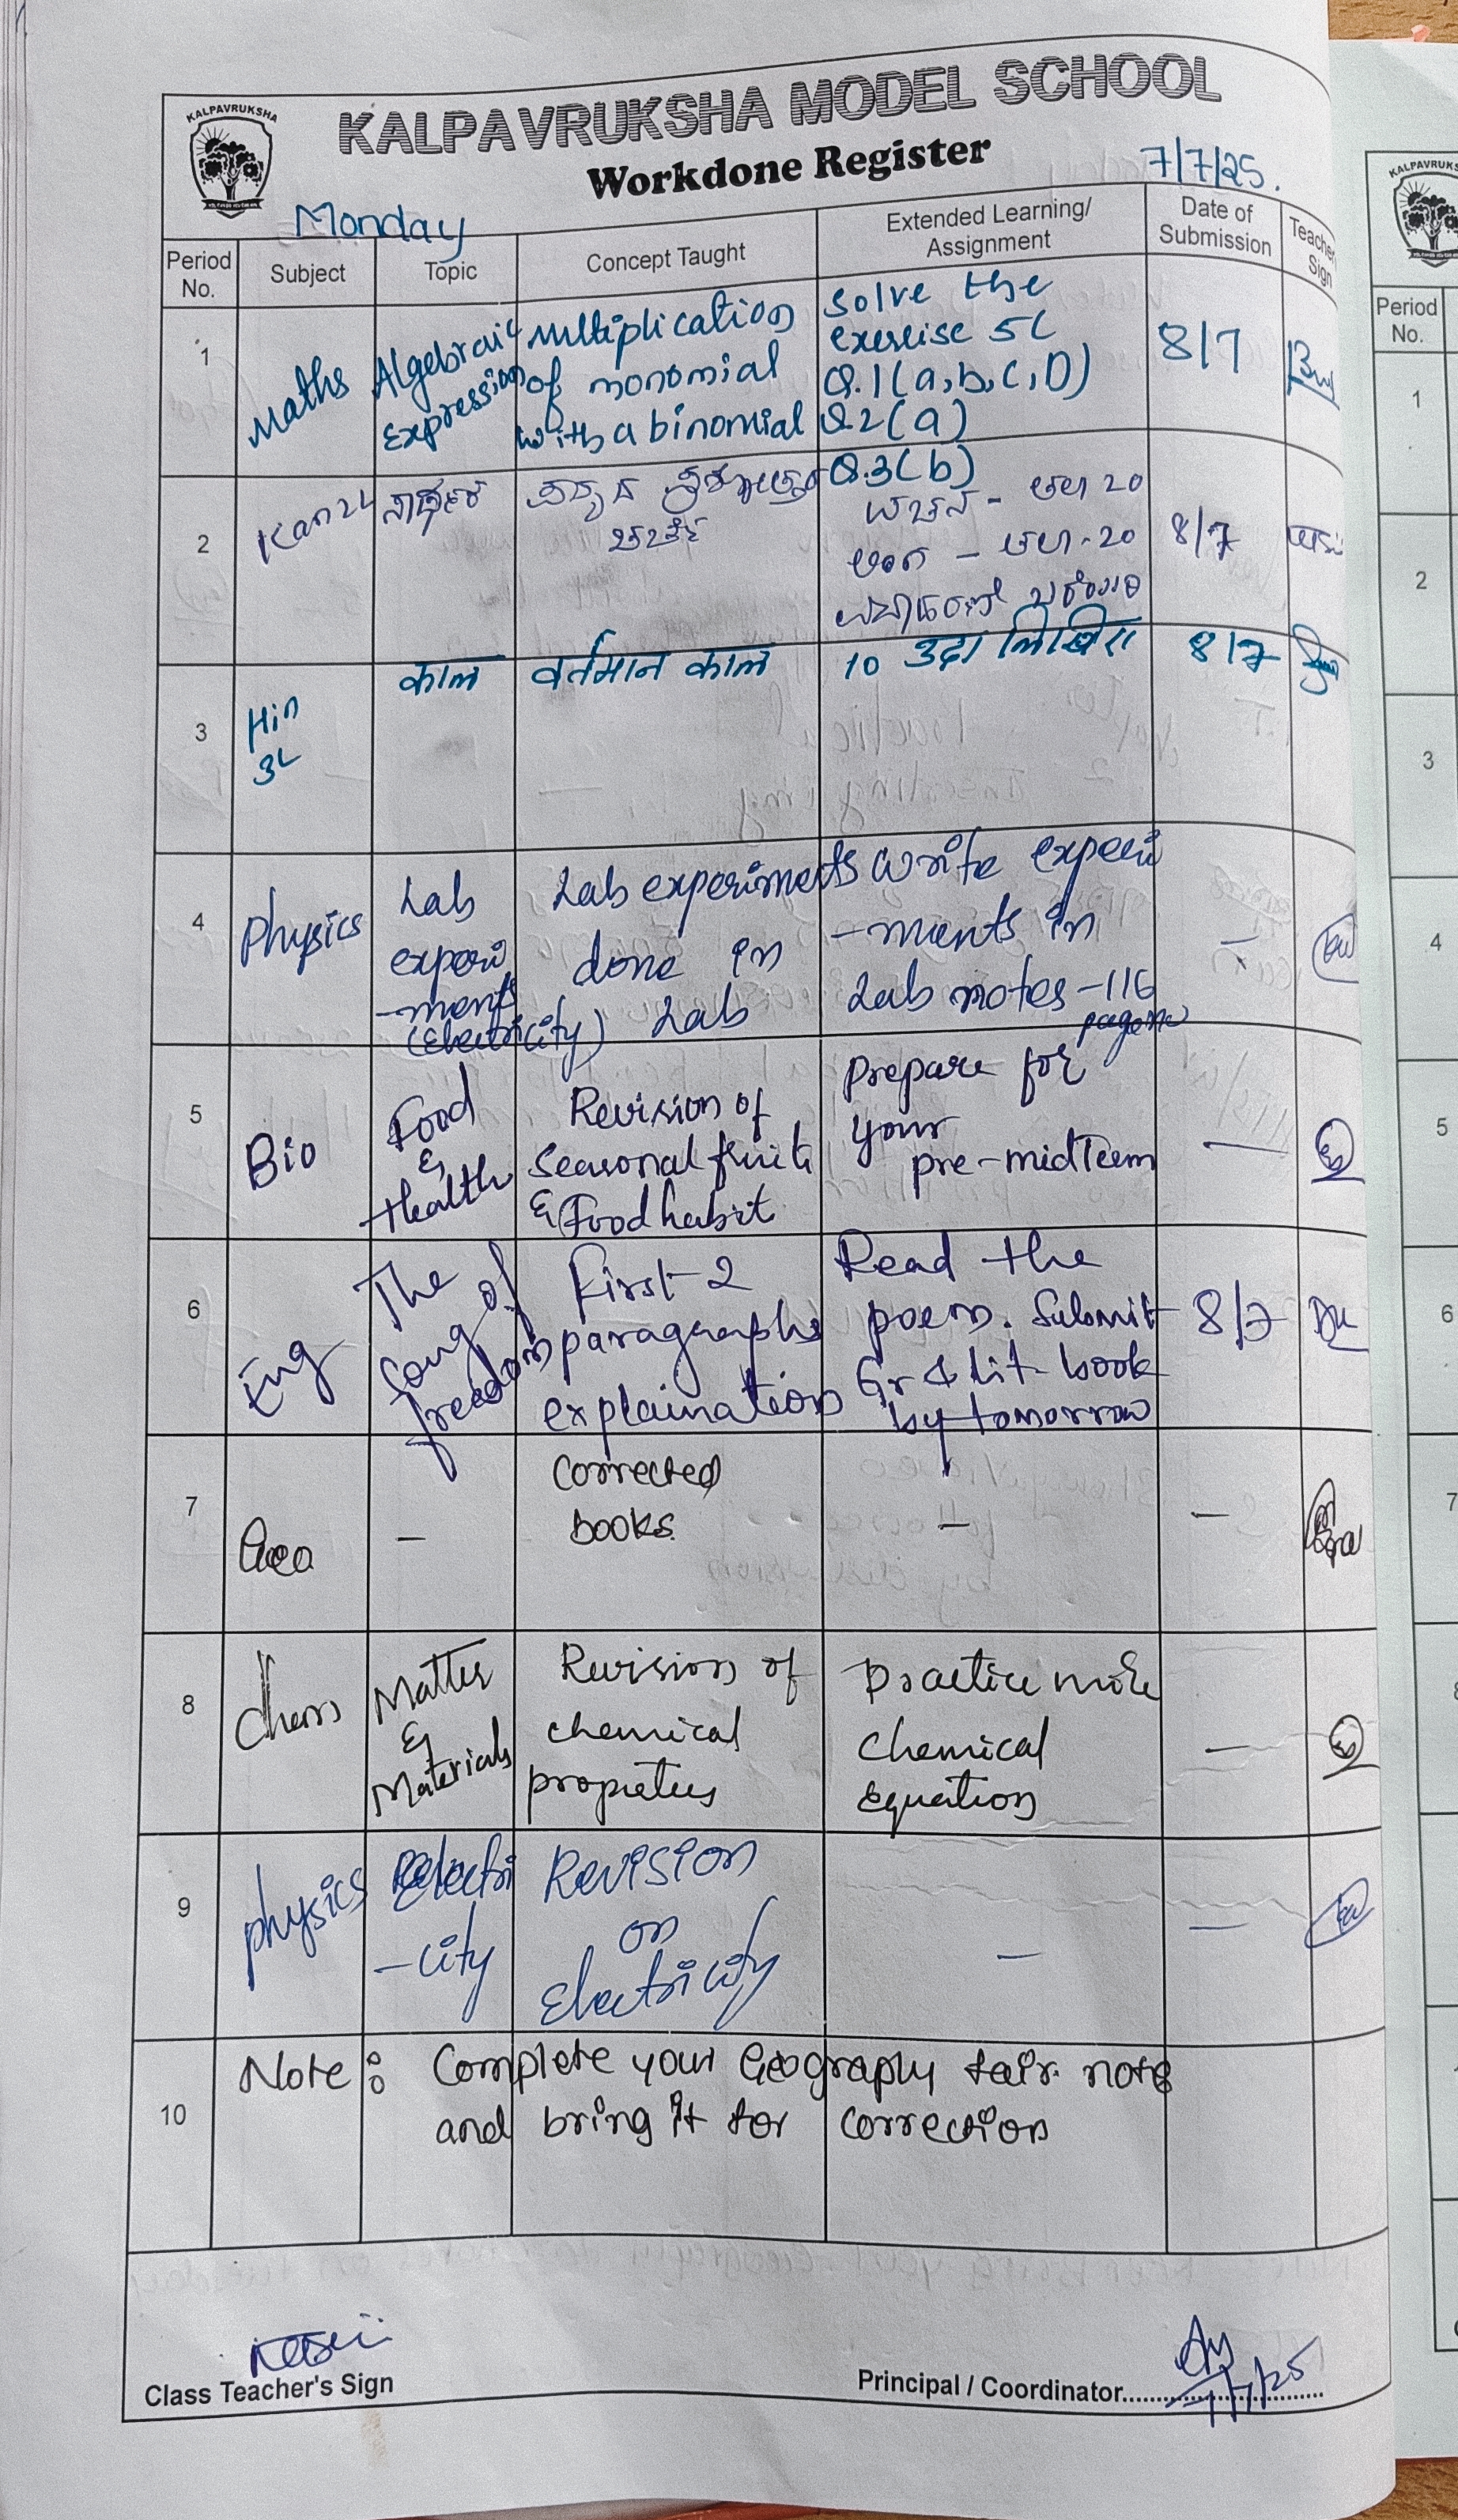 KALPAVRUKSHA
KALPAVRUKSHA MODEL SCHOOL
Workdone Register
7/7/25.
Monday
Period No.
Subject
Topic
Concept Taught
Extended Learning/ Assignment
Date of Submission
Teacher Sign
1
Maths
Algebraic
Expression
Multiplication
of monomial
with a binomial
Solve the
exercise 5C
Q.1(a,b,c,D)
Q.2(a)
Q.3(b)
8/7
2
Kan 2L
ಚರ್ಚೆ
ವಚನ - 20
- 20
8/7
3
Hin
3L
काल
वर्तमान काल
10 उदा लिखिए
8/7
4
Physics
Lab
experi
-ments
(Electricity)
Lab experiments
done in
Lab
write experi
-ments in
Lab notes -116
page no
-
5
Bio
Food
&
Health
Revision of
Seasonal fruits
& Food habit
Prepare for
your
pre-midTerm
-
6
Eng
The
song of
freedom
First 2
paragraphs
explaination
Read the
poem. Submit
Gr & Lit book
by tomorrow
8/7
7
Geo
-
Corrected
books.
-
-
8
Chem
Matter
&
Materials
Revision of
chemical
propreties
Practice more
Chemical
Equation
-
9
Physics
Electri
-city
Revision
on
Electricity
-
-
10
Note: Complete your Geography fair note
and bring it for correction
Class Teacher's Sign
Principal / Coordinator
KALPAVRUKS
Period
No.
1
2
3
4
5
6
7